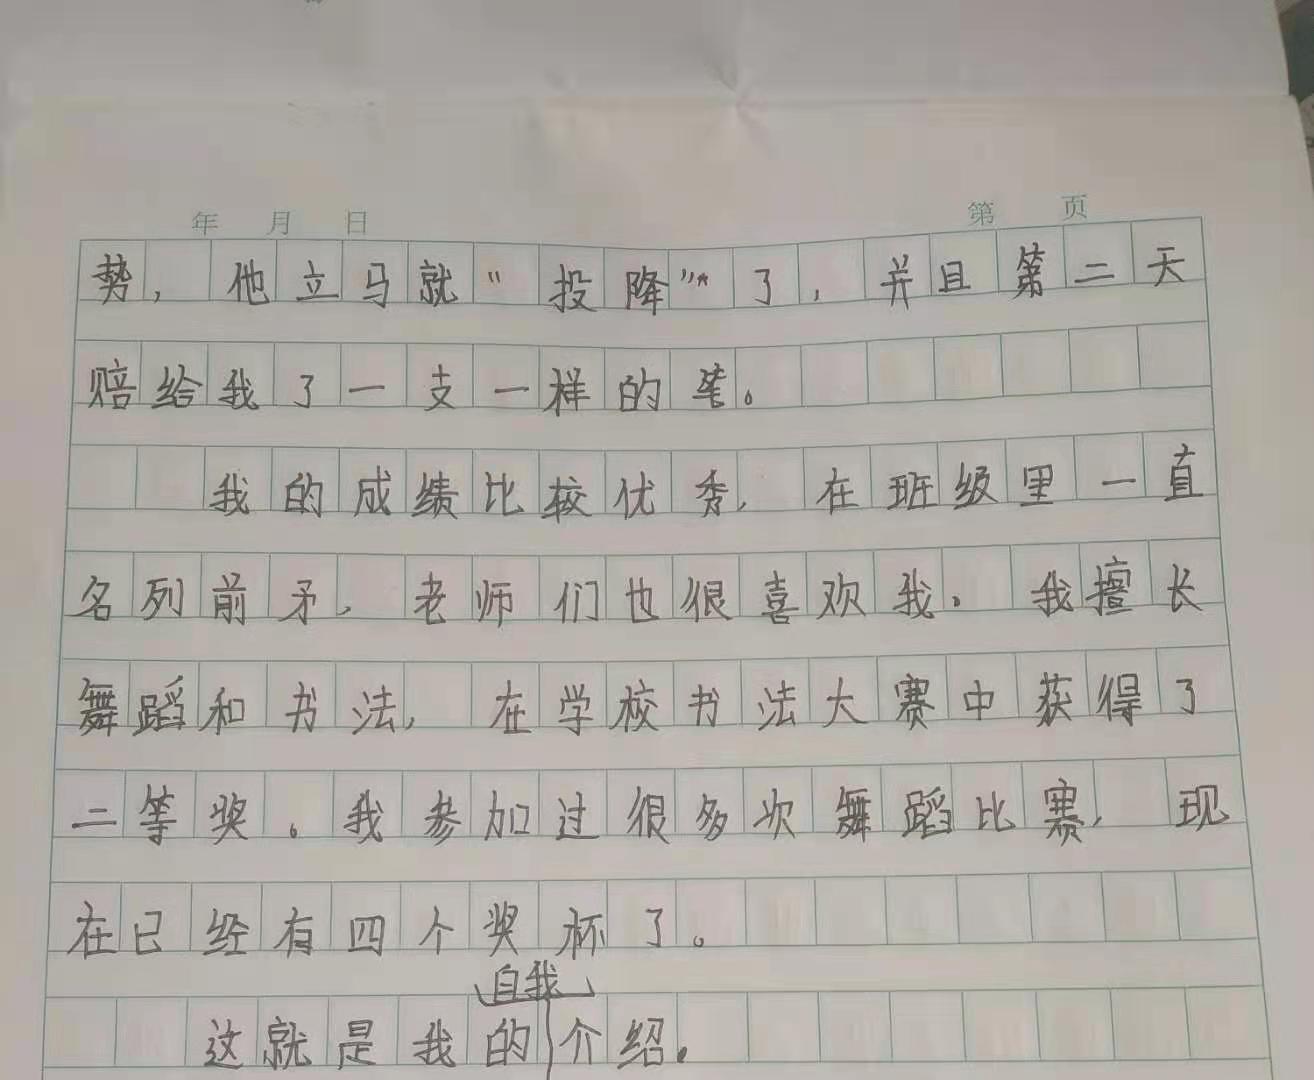 年 月 日 第 页
势，他立马就“投降”了，并且第二天
赔给我了一支一样的笔。
我的成绩比较优秀，在班级里一直
名列前矛，老师们也很喜欢我。我擅长
舞蹈和书法，在学校书法大赛中获得了
二等奖。我参加过很多次舞蹈比赛，现
在已经有四个奖杯了。
自我
这就是我的介绍。